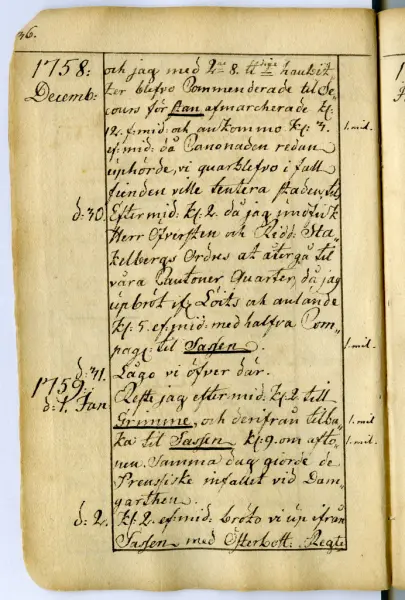 36.
1758: och jag med 2ne 8. ℔dige haubit
Decemb: ker blefvo Commenderade til Se
cours för stan afmarcherade kl:
12. f: mid: och ankommo kl: 3. 1. mil.
ef: mid: då Canonaden redan
uphörde, vi quarblefvo i fall
fienden ville tentera staden, til
d: 30. Eftermid: kl: 2. då jag undfick
Herr Öfversten och Ridd: Sta„
kelbergs Ordres at återgå til
våra Cantoner Quarter, då jag
upbröt if: Loitz och anlände
kl: 5. ef: mid: med halfva Com„
pag: til Sassen. 1. mil.
d: 31. Lågo vi öfver där.
1759. d: 1. Jan: Reste jag efter mid: kl: 2 till
Grimme, och derifrån tilba„ 1. mil
ka til Sassen kl: 9. om afto„ 1. mil.
nen. Samma dag giorde de
Preussiske infallet vid Dam„
garthen.
d: 2. kl: 2. ef: mid: bröto vi up ifrån
Sassen med Österbott: Regte